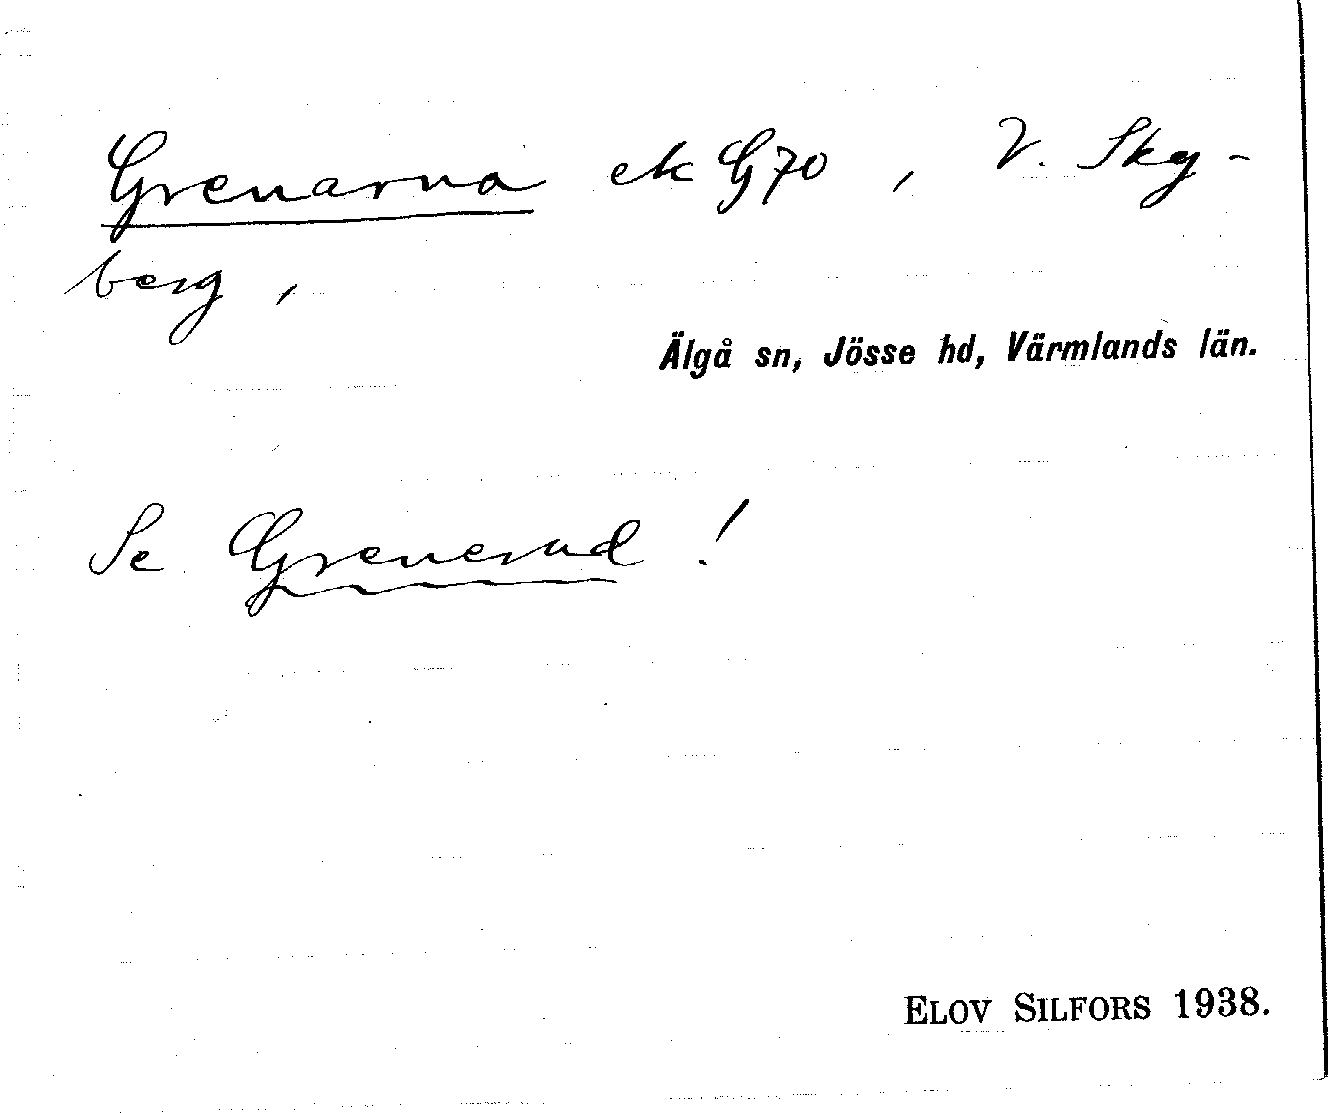 Grenarna ek G70, V. Sky-
berg,
Älgå sn, Jösse hd, Värmlands län.
Se Grenerud!
ELOV SILFORS 1938.